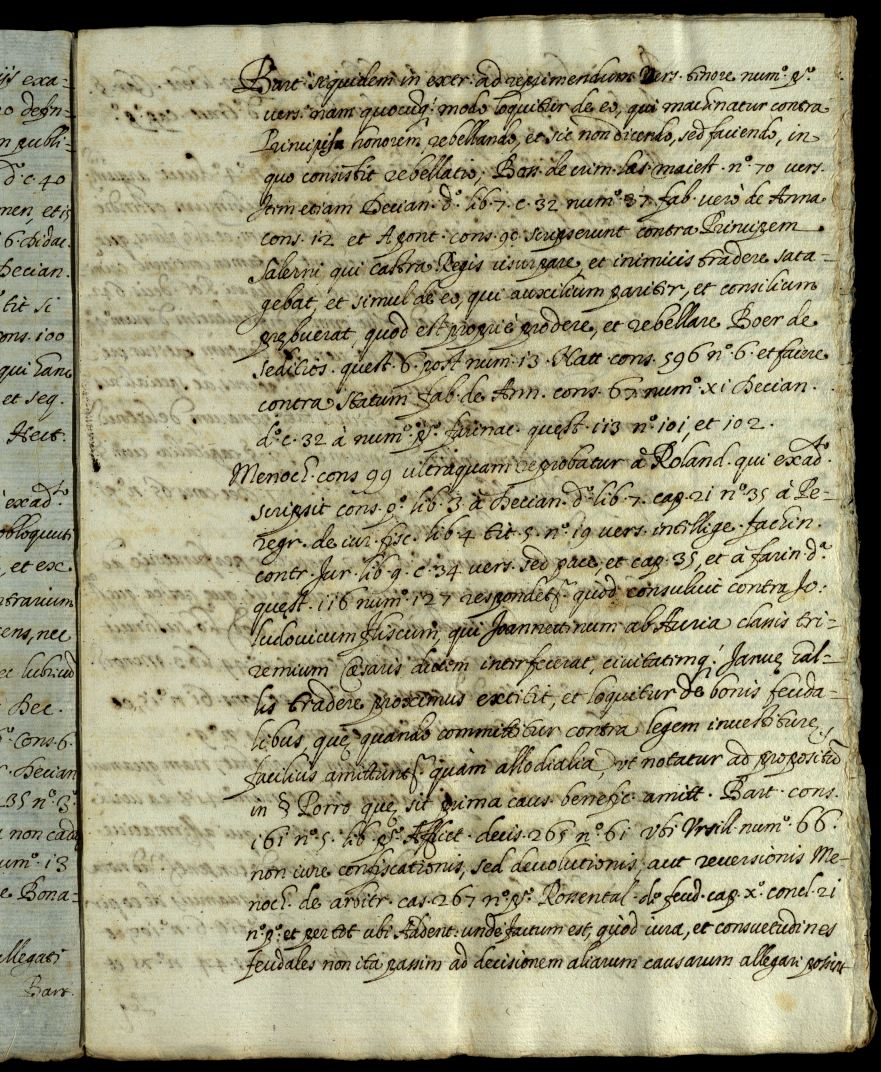 ijs exa-
o defn-
n publi-
d.º c. 40
men, et is
6. Didac.
Decian.
tit si
ons. 100
qui hanc
et seq.
Aert.
exad.º
obloquuti
, et exc
ntrarium
cens, nec
ec lubricũ
Dec.
º cons. 6.
Decian
35 nº. 3º.
a non cada
umº. 13
e Bona-
allegati
Bart.
Bart. siquidem in extr. ad reprimendum Vers. tinore num.º pº.
vers. nam quocuq; modo loquitur de eo, qui machinatur contra
Principis honorem, rebellando, et sic non dicendo, sed faciendo, in
quo consistit rebellatio, Boss. de crim. læs. maiest. n.º 70 vers.
Item etiam Decian. d.º lib. 7. c. 32 num.º 37. fab. verò de Anna
cons. 12 et Apont. cons. 90 scripserunt contra Principem
Salerni qui castra Regis usurpare, et inimicis tradere sata-
gebat, et simul de eo, qui auxilium pariter, et consilium
prębuerat, quod est propriè prodere, et rebellare Boer de
seditios. quęst. 6. post num. 13. Natt. cons. 596 n.º 6. et facere
contra statum fab. de Ann. cons. 67 num.º xi. Decian.
d.º c. 32 à num.º pº. farinac. quęst. 113 n.º 101, et 102.
Menoch. cons 99 ultraquam reprobatur à Roland. qui exad.º
scripsit cons. pº. lib. 3 à Decian. d.º lib. 7. cap. 21 n.º 35 à Pe-
regr. de iur. fisc. lib. 4 tit. 5. n.º 19 vers. intellige. Jachin.
contr. Jur. lib. 9. c. 34 vers. sed pace, et cap. 35, et à farin. d.ª
quęst. 116 num.º 127 respondetr. quòd consuluit contra Jo:
ludovicum fliscum, qui Joannettinum ab Auria classis tri-
remium Cæsaris ducem interfecerat, civitatemq; Januę Gal-
lis tradere proximus extitit, et loquitur de bonis feuda-
libus, quę quando committitur contra legem investiturę,
facilius amittuntr. quàm allodialia, ut notatur ad propositũ
in § Porro quę sit prima caus. benefic. amitt. Bart. cons.
161 n.º 5. lib. pº. Afflict. decis. 265 n.º 61 ubi Ursill. num.º 66.
non iure confiscationis, sed devolutionis, aut reversionis Me-
noch. de arbitr. cas. 267 n.º pº. Rosental. de feud. cap. x.º concl. 21
n.º pº. et per tot. ubi Addent. unde factum est, quòd iura, et consuetudines
feudales non ita passim ad decisionem aliarum causarum allegari possint